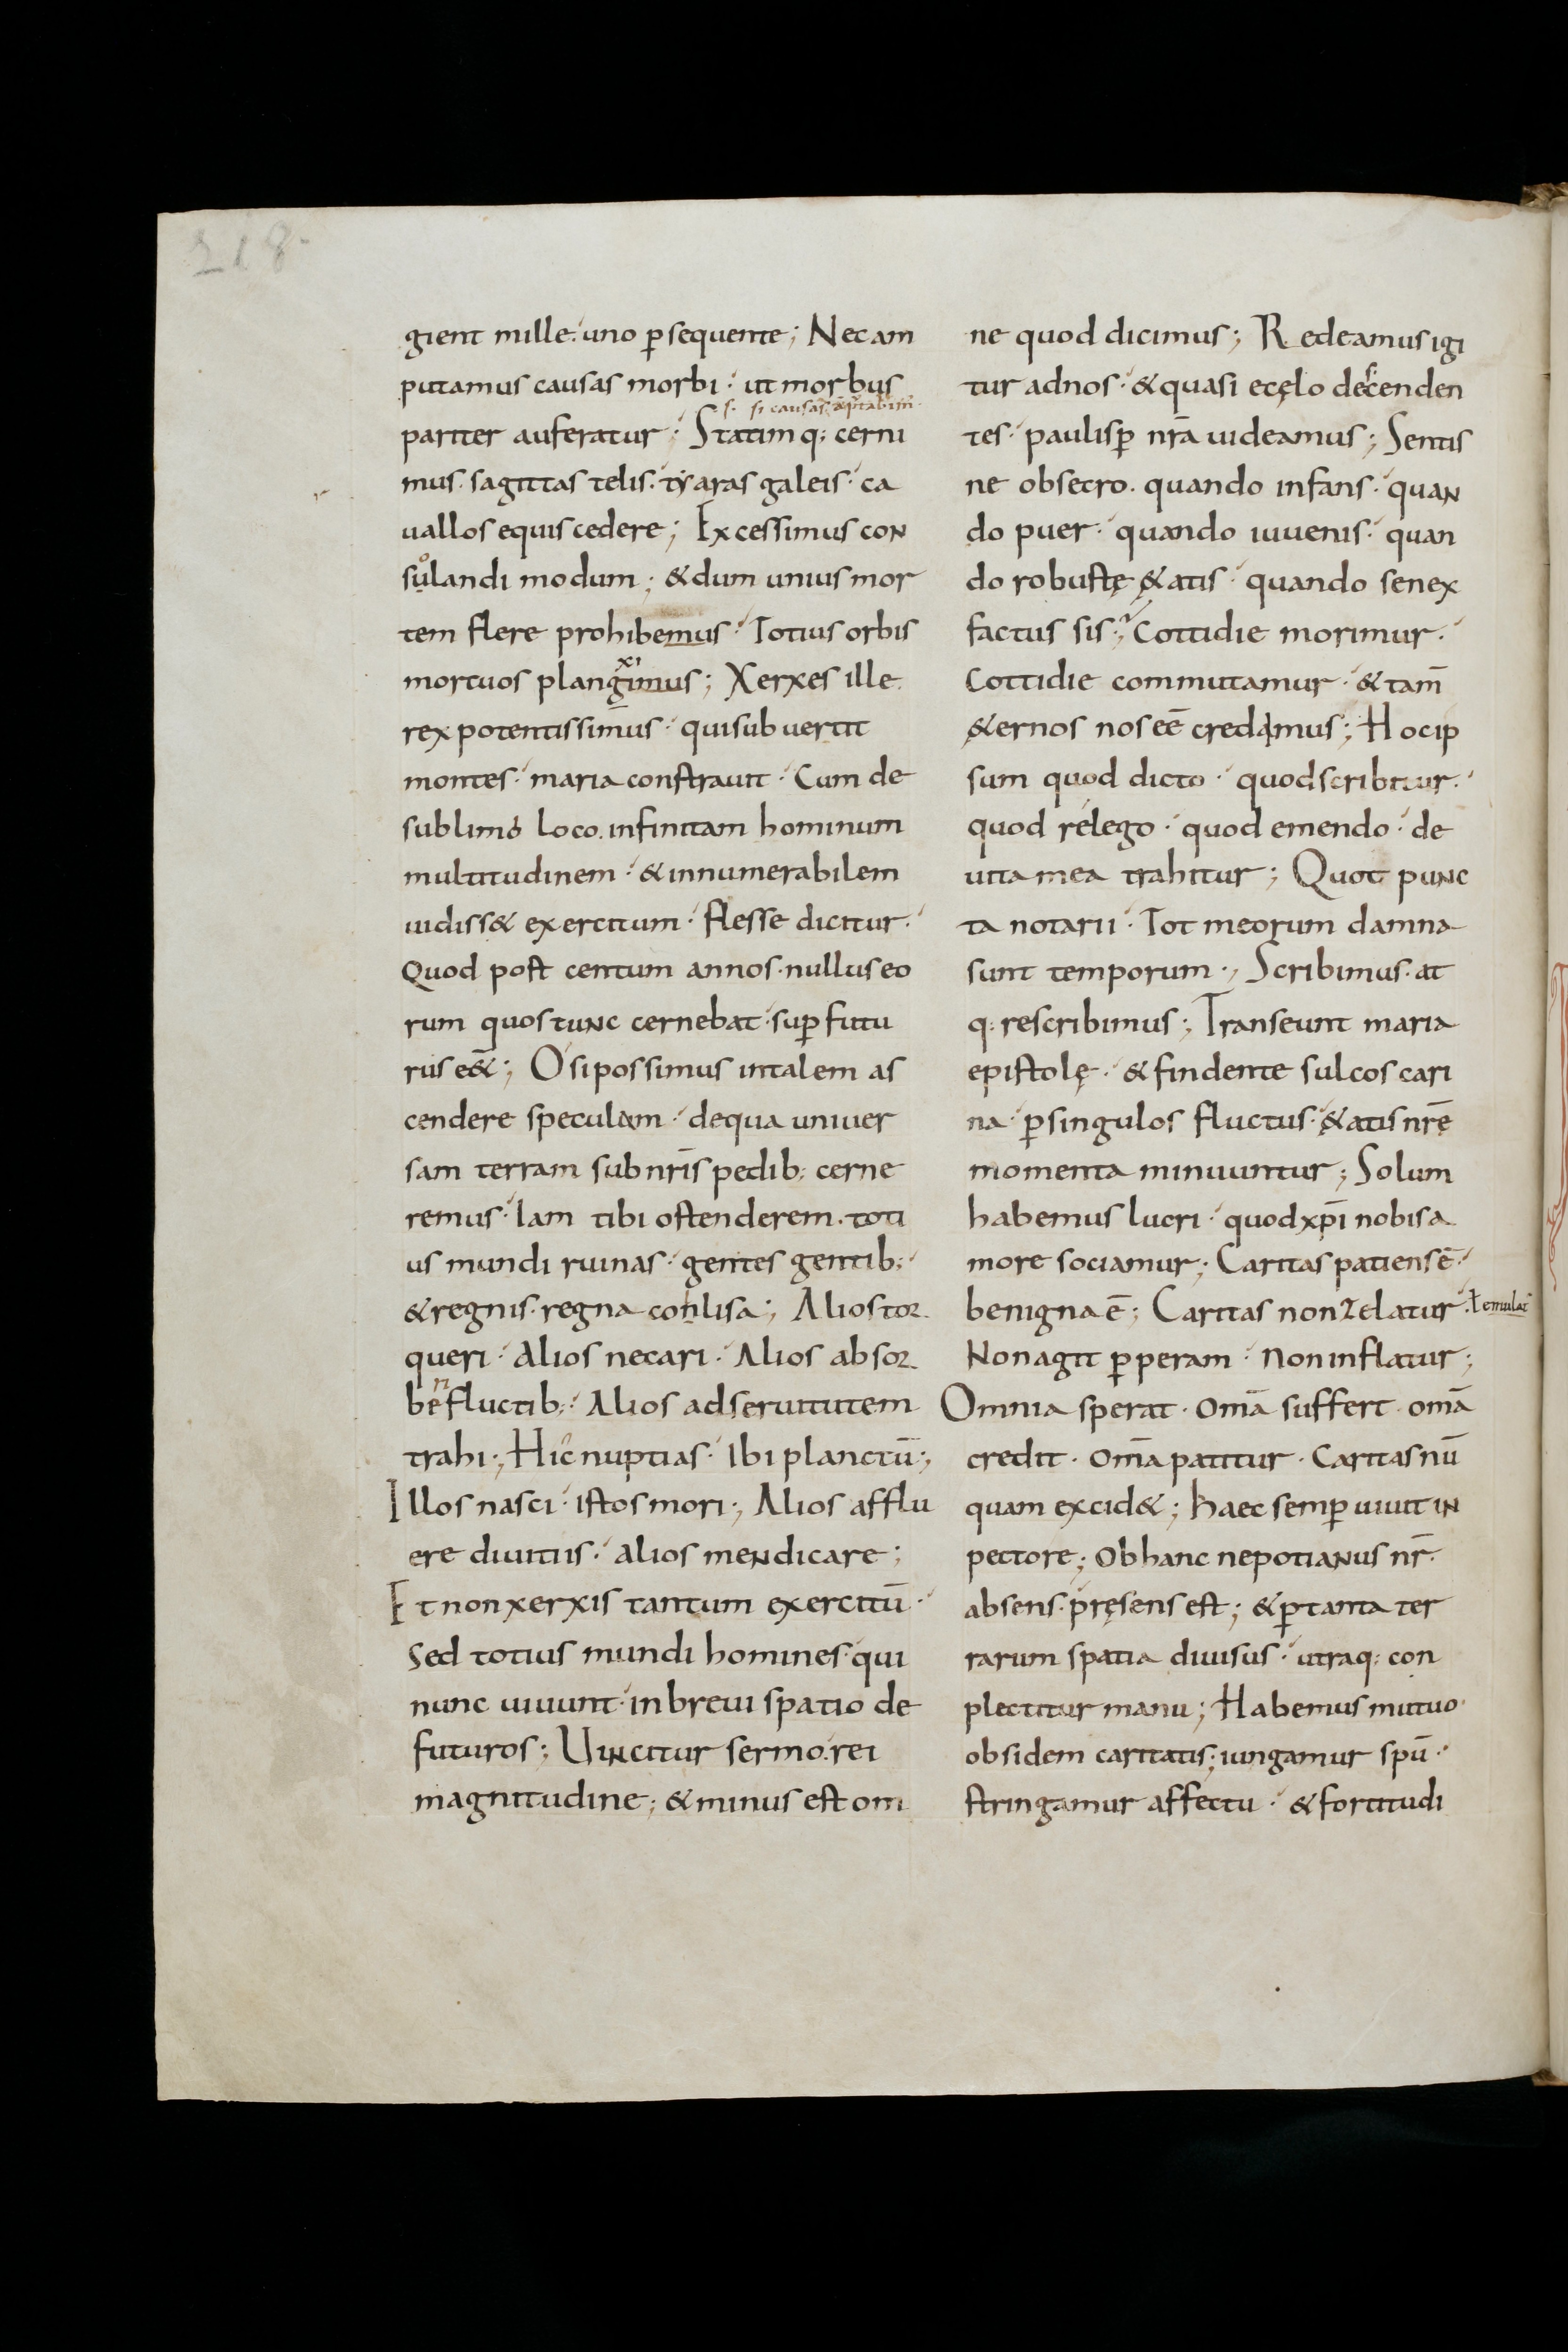 218
gient mille· uno ꝑsequente; Necam
putamus causas morbi· ut morbus
s· si causas ãputabim̃
pariter auferatur; Statimq; cerni
mus· sagittas telis· tẏaras galeis· ca
uallos equis cedere; Excessimus con
sulandi modum; & dum unius mor
o
tem flere prohibemus· Totius orbis
xi
mortuos plangimus; Xerxes ille
rex potentissimus· qui subuertit
montes· maria constrauit· Cum de
sublimi loco. infinitam hominum
multitudinem· & innumerabilem
uidiss& exercitum· flesse dicitur·
Quod post centum annos· nullus eo
rum quos tunc cernebat· suꝑ futu
rus ee&; O si possimus in talem as
cendere speculam· de qua uniuer
sam terram sub nr̃is pedib; cerne
remus· Iam tibi ostenderem· toti
us mundi ruinas· gentes gentib;·
& regnis· regna conlisa; Alios tor
queri· Alios necari· Alios absor
ri
be fluctib;· Alios ad seruitutem
trahi; Hic nuptias· Ibi planctũ;
Illos nasci· istos mori; Alios afflu
ere diuitiis· Alios mendicare;
Et non xerxis tantum exercitũ·
Sed totius mundi homines· qui
nunc uiuunt· in breui spatio de
futuros; Uincitur sermo rei
magnitudine; & minus est om
ne quod dicimus; Redeamus igi
tur ad nos· & quasi e cęlo decenden
s
tes· paulisꝑ nr̃a uideamus; Sentis
ne obsecro· quando infans· quan
do puer· quando iuuenis· quan
do robustę &atis· quando senex
factus sis; Cottidie morimur·
Cottidie commutamur· & tam̃
&ernos nos eē credimus; Hoc ip
sum quod dicto· quod scribitur·
quod rélego· quod emendo· de
uita mea trahitur; Quot punc
ta notarii· Tot meorum damna
sunt temporum; Scribimus· at
q; rescribimus; Transeunt maria
epistolę· & findente sulcos cari
na· ꝑ singulos fluctus· &atis nr̃ę
momenta minuuntur; Solum
habemus lucri· quod xp̃i nobis a
more sociamur; Caritas patiens ē·
benigna ē; Caritas non zelatur· ł emulat̃
Non agit ꝑperam· Non inflatur;
Omnia sperat· om̃a suffert· om̃a
credit· om̃a patitur· Caritas nũ
quam excid&; haec semꝑ uiuit in
pectore; Ob hanc nepotianus nr̃·
absens· pręsens est; & ꝑ tanta ter
rarum spatia diuisus· utraq; con
plectitur manu; Habemus mutuo
obsidem caritatis; iungamur spũ·
stringamur affectu· & fortitudi